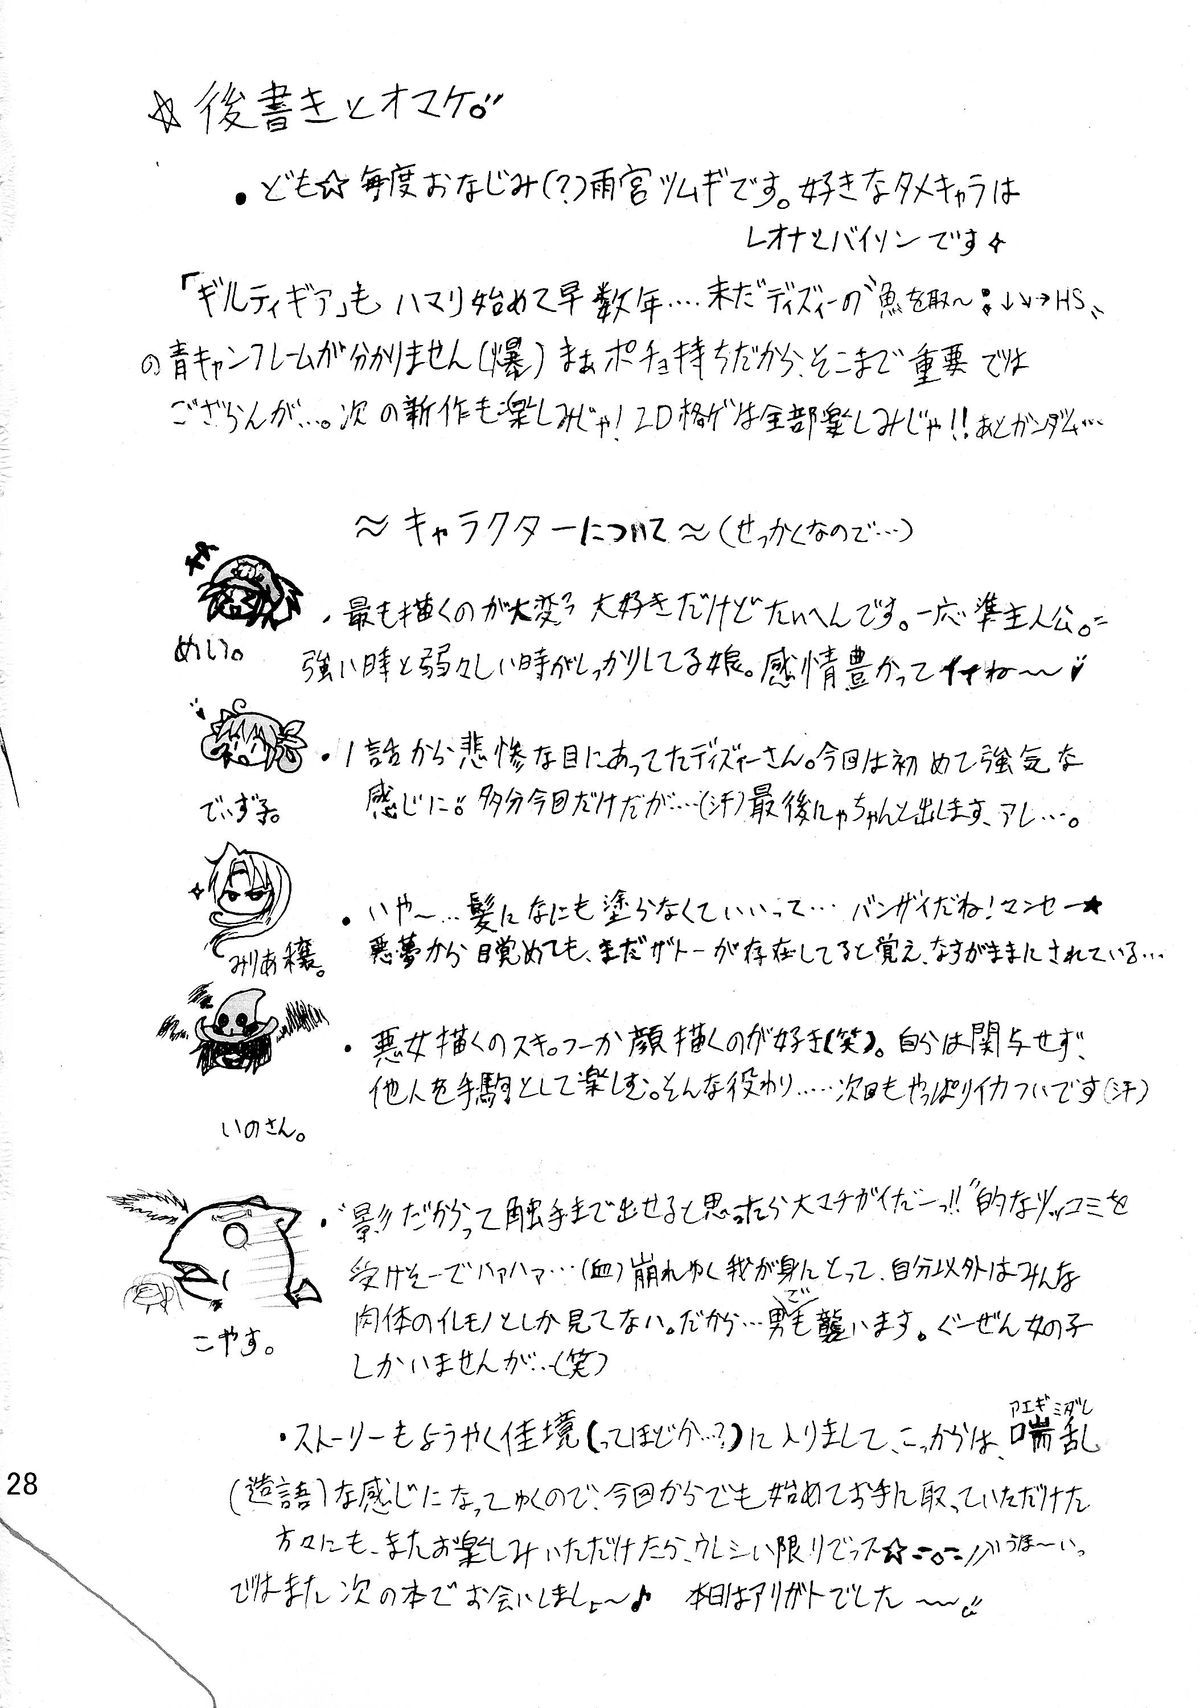 ☆後書きとオマケ。
・ども☆毎度おなじみ(?)雨宮ツムギです。好きなタメキャラは
レオナとバイソンです✧
「ギルティギア」もハマリ始めて早数年‥‥未だディズィーの〝魚を取〜:↓↘→HS〟
の青キャンフレームが分かりません(爆)まぁポチョ持ちだから、そこまで重要では
ござらんが…。次の新作も楽しみじゃ!2D格ゲは全部楽しみじゃ!!あとガンダム…
〜キャラクターについて〜(せっかくなので…)
めい。
・最も描くのが大変 大好きだけどたいへんです。一応準主人公。
強い時と弱々しい時がしっかりしてる娘。感情豊かってイイね〜〜
でぃず子。
・1話から悲惨な目にあってたディズィーさん。今回は初めて強気な
感じに。多分今回だけだが…(汗)最後にゃちゃんと出します、アレ…。
みりあ穣。
・いや〜…髪になにも塗らなくていいって… バンザイだね!マンセー★
悪夢から目覚めても、まだザトーが存在してると覚え、なすがままにされている…
いのさん。
・悪女描くのスキ。つーか顔描くのが好き(笑)。自分は関与せず、
他人を手駒として楽しむ。そんな役わり‥‥‥次回もやっぱりイカついです(汗)
こやす。
・〝影だからって触手まで出せると思ったら大マチガイだーっ!!〟的なツッコミを
受けそーでハァハァ…(血)崩れゆく我が身にとって、自分以外はみんな
肉体のイレモノとしか見てない。だから…男でも襲います。ぐーぜん女の子
しかいませんが…(笑)
・ストーリーもようやく佳境(ってほどか…?)に入りまして、こっからは、喘乱
アエギミダレ
(造語)な感じになってゆくので、今回からでも始めてお手に取っていただけた
方々にも、またお楽しみいただけたら、ウレシい限りでっス☆ うほ〜い。
ではまた次の本でお会いしましょ〜♪ 本日はアリガトでした〜〜
28